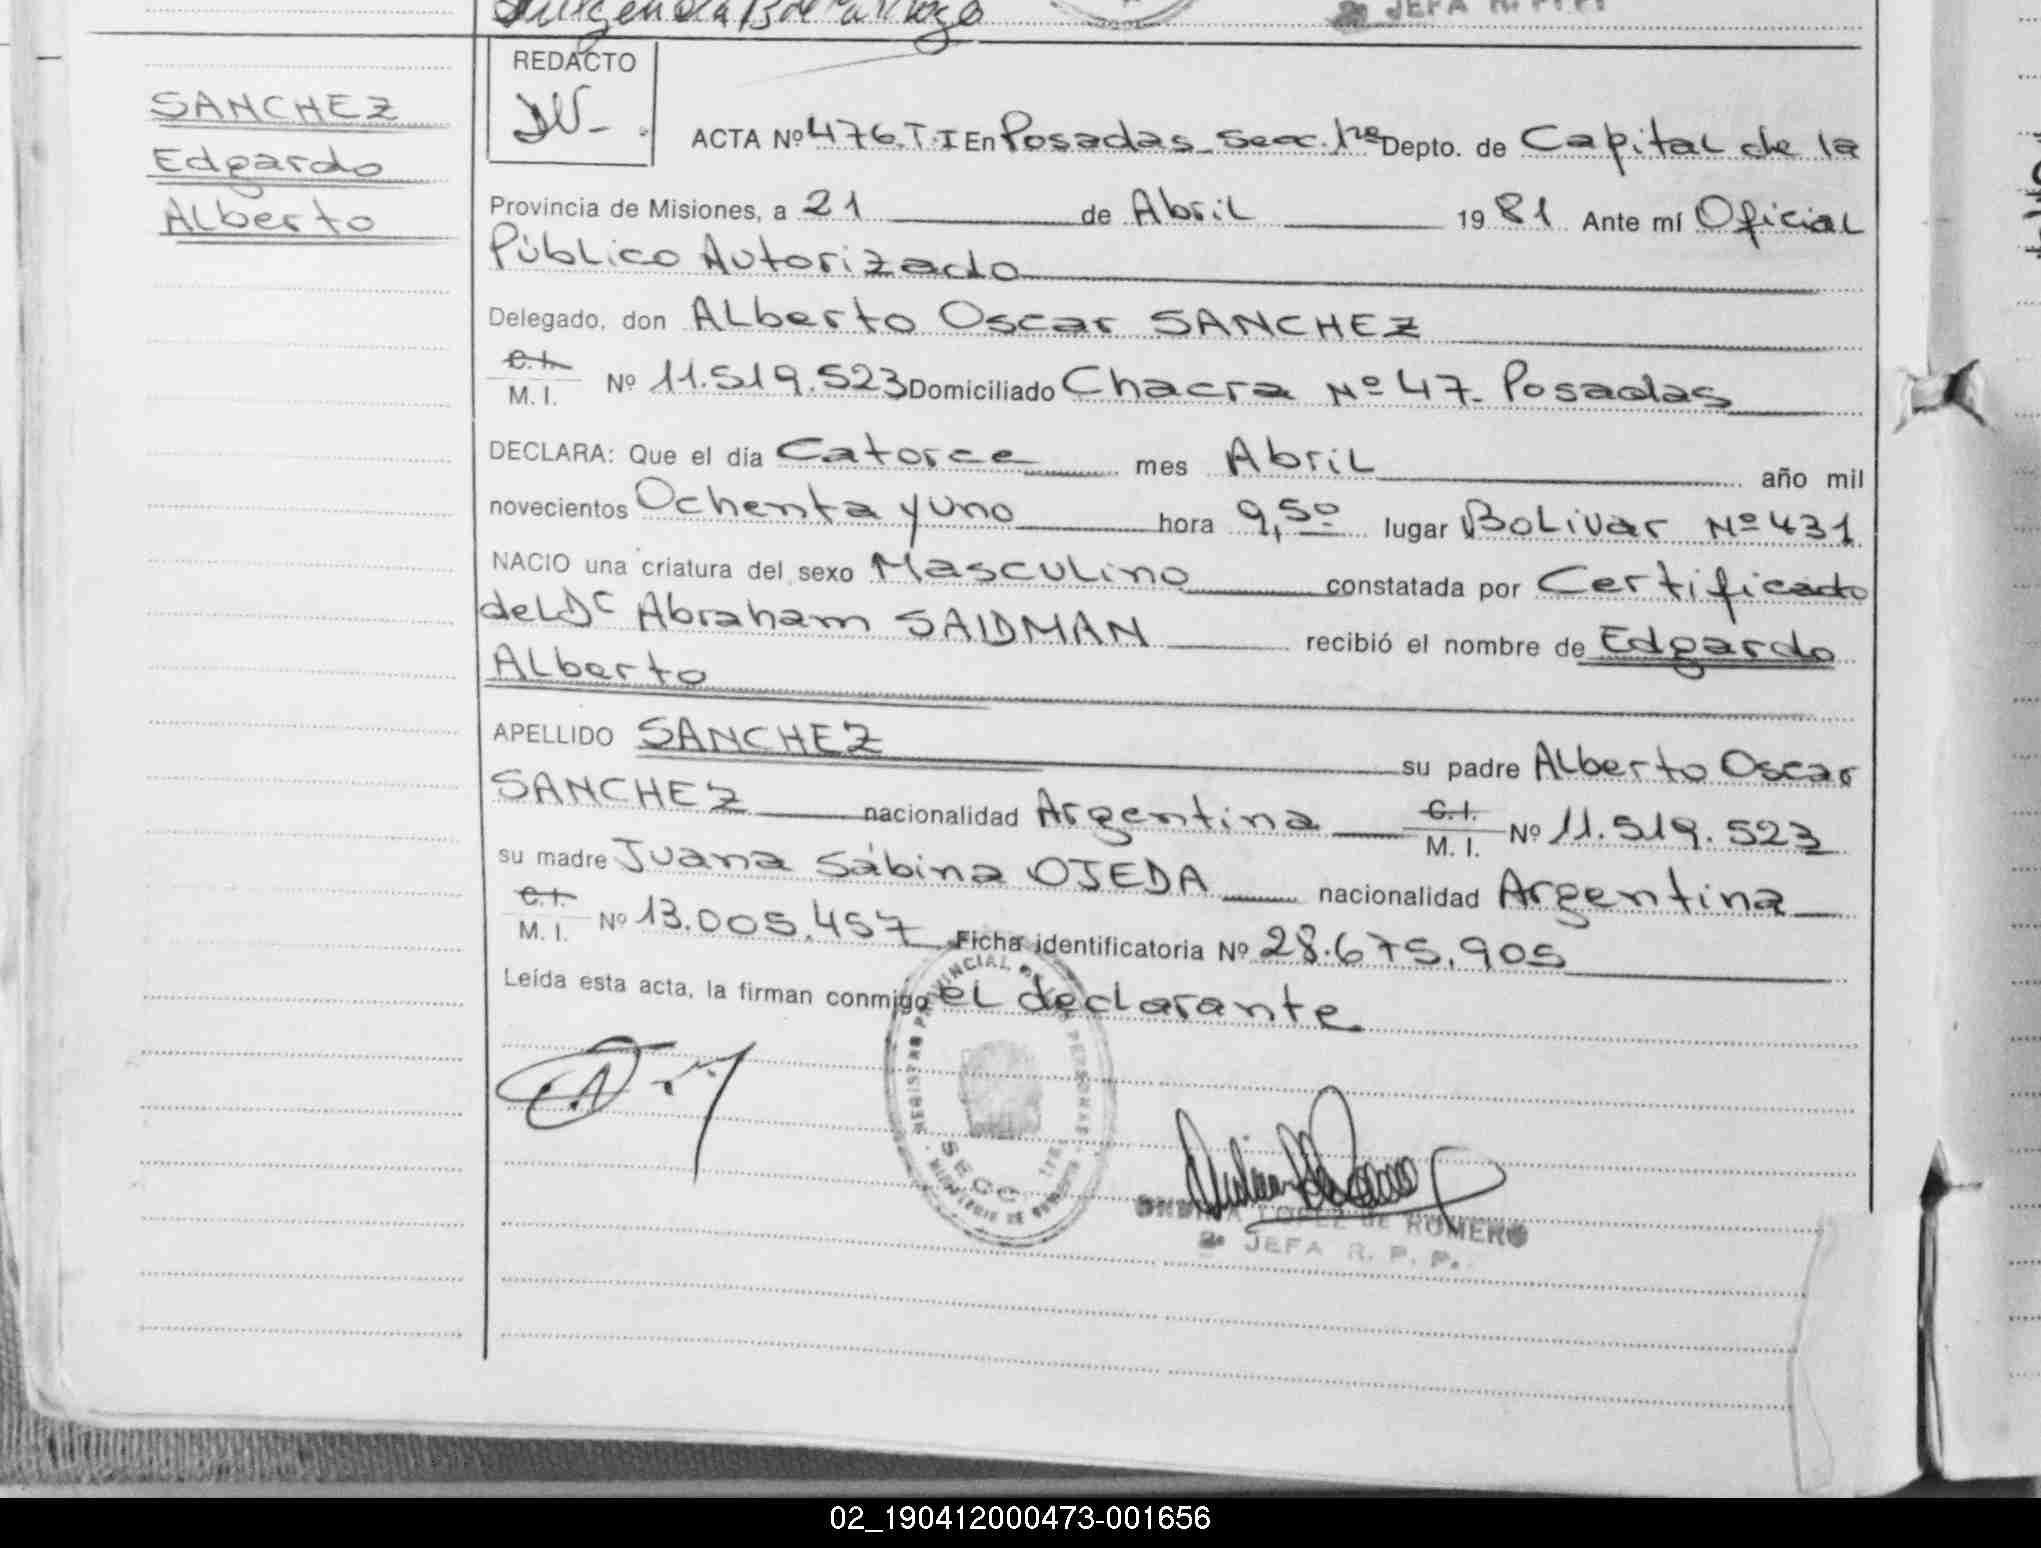 JEFA R. P. P.
SANCHEZ
Edgardo
Alberto
REDACTO
ACTA Nº 476.T.I En Posadas_ Secc. 1ra Depto. de Capital de la
Provincia de Misiones, a 21 de Abril 1981 Ante mí Oficial
Público Autorizado
Delegado, don Alberto Oscar SANCHEZ
C.I.
M. I. Nº 11.519.523 Domiciliado Chacra Nº 47_ Posadas
DECLARA: Que el día Catorce mes Abril año mil
novecientos Ochenta y uno hora 9,50 lugar Bolivar Nº 431
NACIO una criatura del sexo Masculino constatada por Certificado
del Dr Abraham SAIDMAN recibió el nombre de Edgardo
Alberto
APELLIDO SANCHEZ su padre Alberto Oscar
SANCHEZ nacionalidad Argentina C.I. M. I. Nº 11.519.523
su madre Juana Sábina OJEDA nacionalidad Argentina
C.I.
M. I. Nº 13.005.457 Ficha identificatoria Nº 28.675.905
Leída esta acta, la firman conmigo el declarante
REGISTRO PROVINCIAL DE LAS PERSONAS
SECC. 1ra
MINISTERIO DE GOBIERNO
LOPEZ DE ROMERO
2a JEFA R. P. P.
02_190412000473-001656